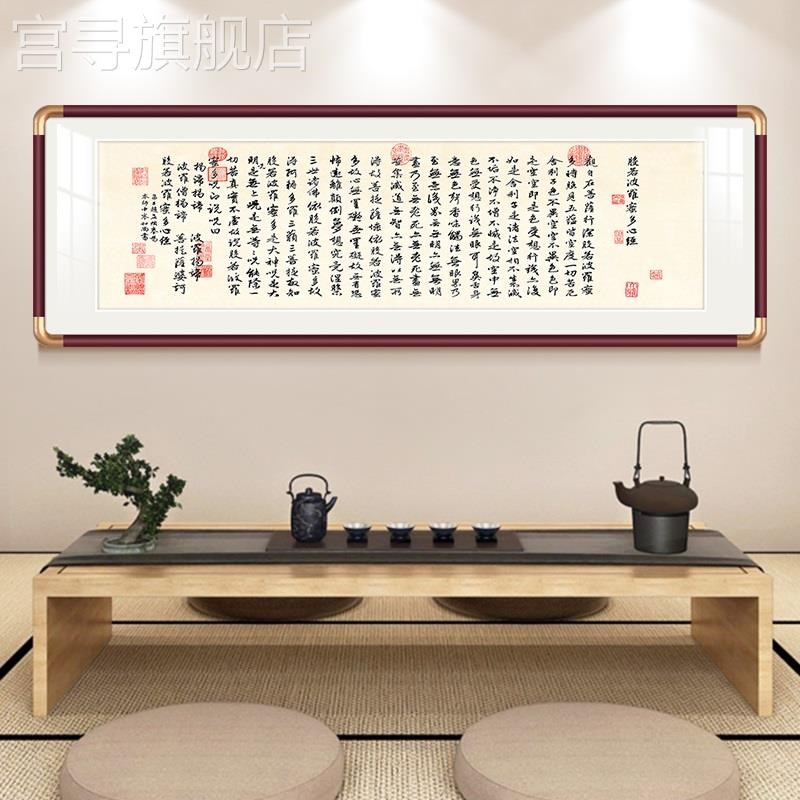 宫寻旗舰店
般若波羅蜜多心經
觀自在菩薩行深般若波羅蜜
多時照見五蘊皆空度一切苦厄
舍利子色不異空空不異色色即
是空空即是色受想行識亦復
如是舍利子是諸法空相不生不滅
不垢不淨不增不減是故空中無
色無受想行識無眼耳鼻舌身
意無色聲香味觸法無眼界乃
至無意識界無無明亦無無明
盡乃至無老死亦無老死盡無
苦集滅道無智亦無得以無所
得故菩提薩埵依般若波羅蜜
多故心無罣礙無罣礙故無有恐
怖遠離顛倒夢想究竟涅槃
三世諸佛依般若波羅蜜多故
得阿耨多羅三藐三菩提故知
般若波羅蜜多是大神咒是大
明咒是無上咒是無等等咒能除一
切苦真實不虛故說般若波羅
蜜多咒即說咒曰
揭諦揭諦 波羅揭諦
波羅僧揭諦 菩提薩婆訶
般若波羅蜜多心經
弟子趙孟頫奉為
本師中峯和尚書